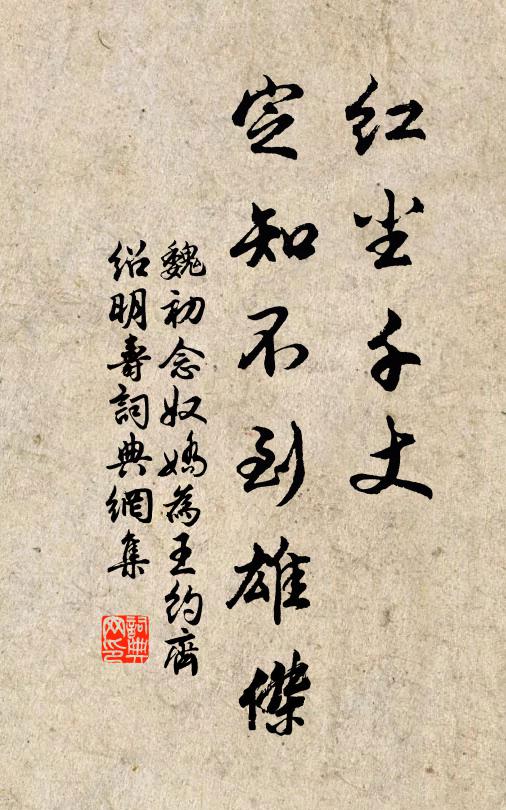 红尘千丈
定知不到雄傑
魏初念奴嬌為王約齋
紹明壽詞典網集
詞典网印